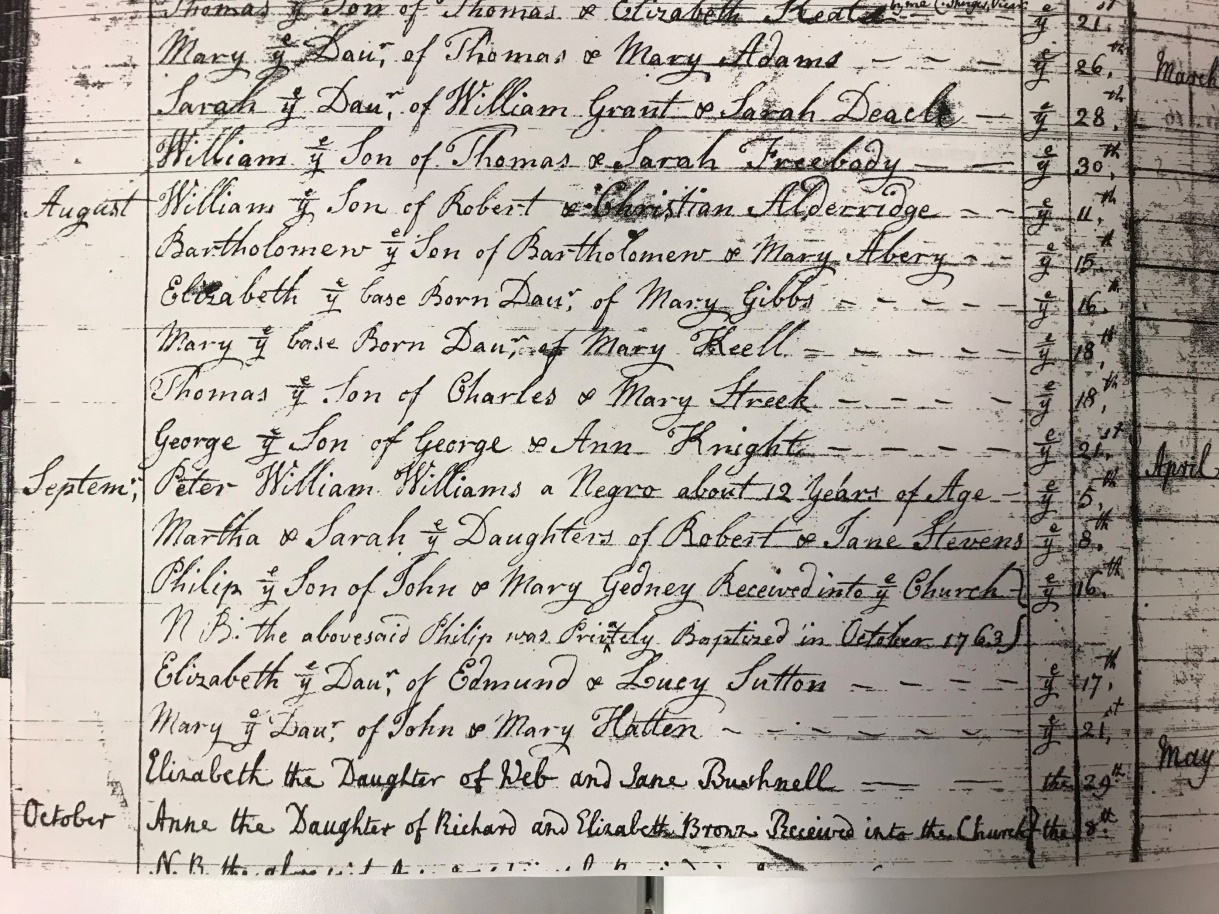 Thomas yͤ Son of Thomas & Elizabeth yͤ 21.st
Mary yͤ Daur, of Thomas & Mary Adams — — — — yͤ 26.th March
Sarah yͤ Daur, of William Grant & Sarah — yͤ 28.th
William yͤ Son of Thomas & Sarah Freebody — — yͤ 30.th
August William yͤ Son of Robert & Christian Alderridge — — yͤ 11.th
Bartholomew yͤ Son of Bartholomew & Mary Abery — — yͤ 15.th
Elizabeth yͤ base Born Daur, of Mary Gibbs — — — — — yͤ 16.th
Mary yͤ base Born Daur, of Mary Keell — — — — — — yͤ 18.th
Thomas yͤ Son of Charles & Mary Streek — — — — — yͤ 18.th
George yͤ Son of George & Ann Knight — — — — — yͤ 21.st
Septemr, Peter William Williams a Negro about 12 Years of Age — yͤ 5.th April
Martha & Sarah yͤ Daughters of Robert & Jane Stevens yͤ 8.th
Philip yͤ Son of John & Mary Gedney Received into yͤ Church } yͤ 16.th
N B: the abovesaid Philip was Privately Baptized in October 1763 }
Elizabeth yͤ Daur, of Edmund & Lucy Sutton — — — — yͤ 17.th
Mary yͤ Daur, of John & Mary Hatten — — — — — — — yͤ 21.st
Elizabeth the Daughter of Web and Jane Bushnell — — the 29th May
October Anne the Daughter of Richard and Elizabeth Received into the Church } the 8.th
N.B. the